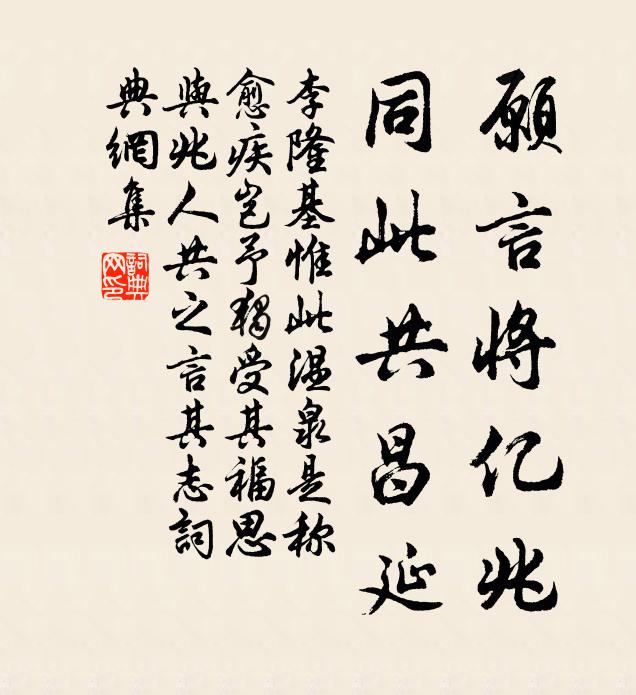 願言将亿兆
同此共昌延
李隆基惟此温泉是称
愈疾岂予獨受其福思
與兆人共之言其志詞
典網集
詞典网印